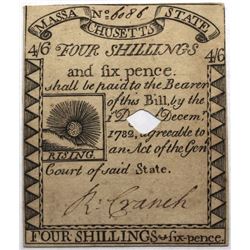 MASSA CHUSETTS STATE
No. 6086
4/6 FOUR SHILLINGS 4/6
and six pence.
shall be paid to the Bearer
of this Bill, by the
1 Decem.
1782, agreeable to
an Act of the Gen
Court of said State.
RISING
R. Cranch
FOUR SHILLINGS & six-pence.